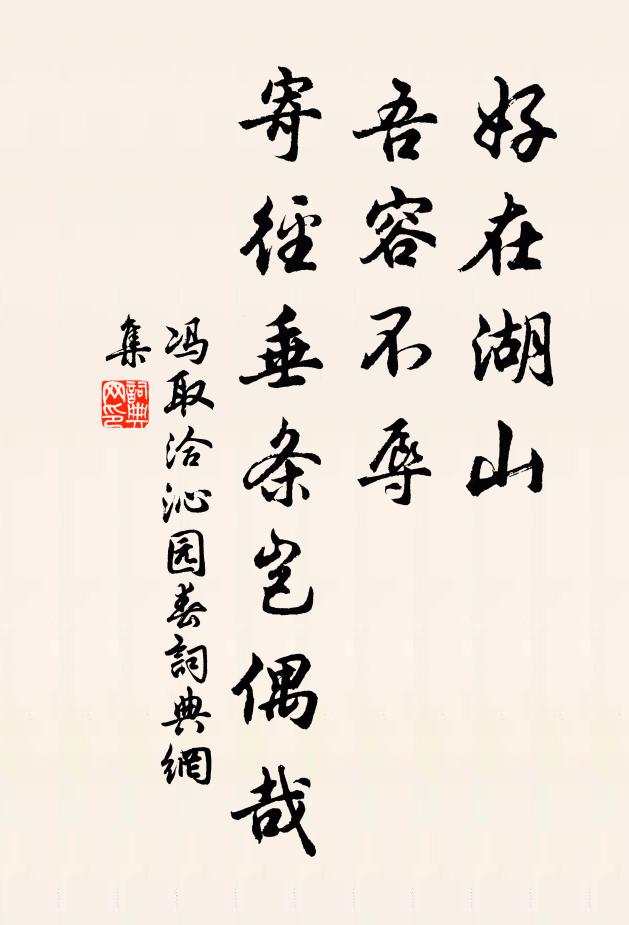 好在湖山
吾容不辱
寄径垂条岂偶哉
冯取洽沁园春詞典網
集
詞典
网印